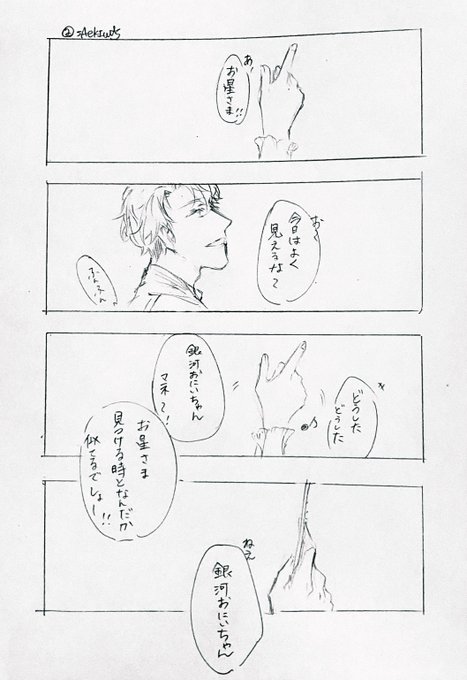 あ、
お星さま!!
お〜
今日はよく
見えるな〜
どうした
どうした
銀河おにいちゃん
マネ〜!
お星さま
見つける時となんだか
似てるでしょー!!
ねえ
銀河おにいちゃん